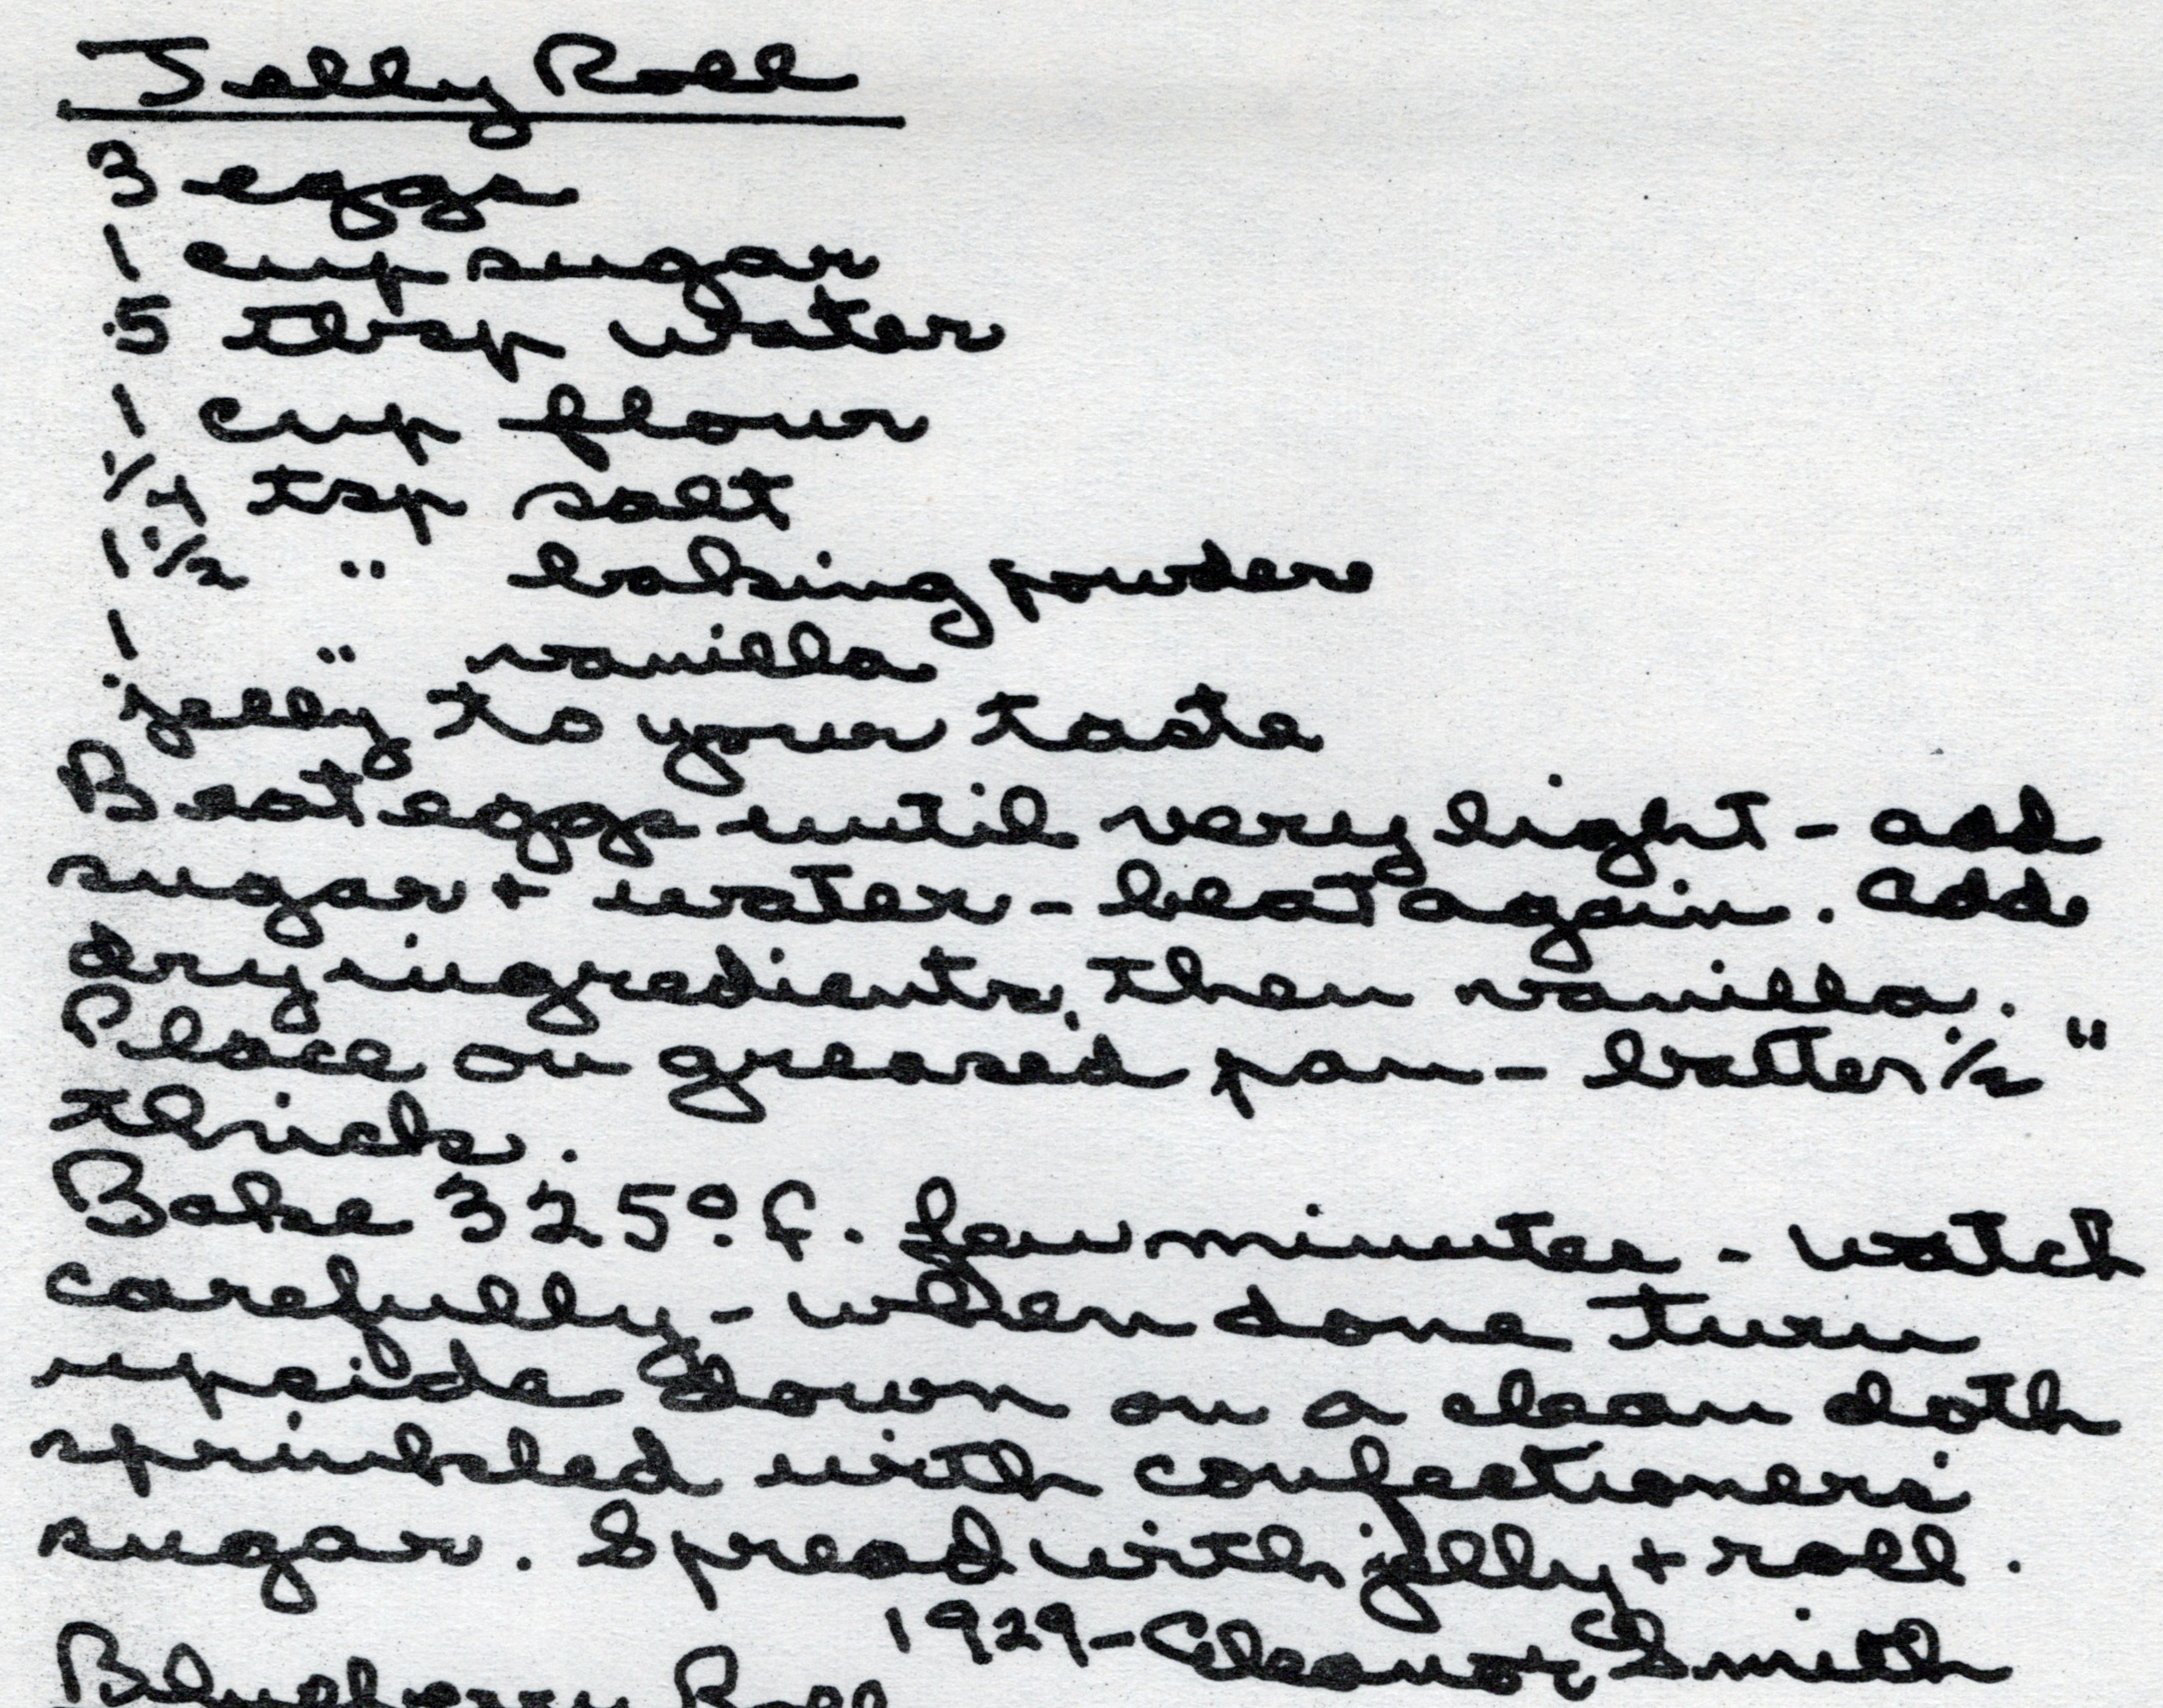 Jelly Roll
3 eggs
1 cup sugar
5 tbsp water
1 cup flour
1/4 tsp salt
1 1/2 " baking powder
1 " vanilla
jelly to your taste
Beat eggs until very light - add
sugar + water - beat again. Add
dry ingredients, then vanilla.
Place on greased pan - batter 1/2"
thick.
Bake 325° F. few minutes - watch
carefully - when done turn
upside down on a clean cloth
sprinkled with confectioners'
sugar. Spread with jelly + roll.
1929 - Eleanor Smith
Blueberry Roll